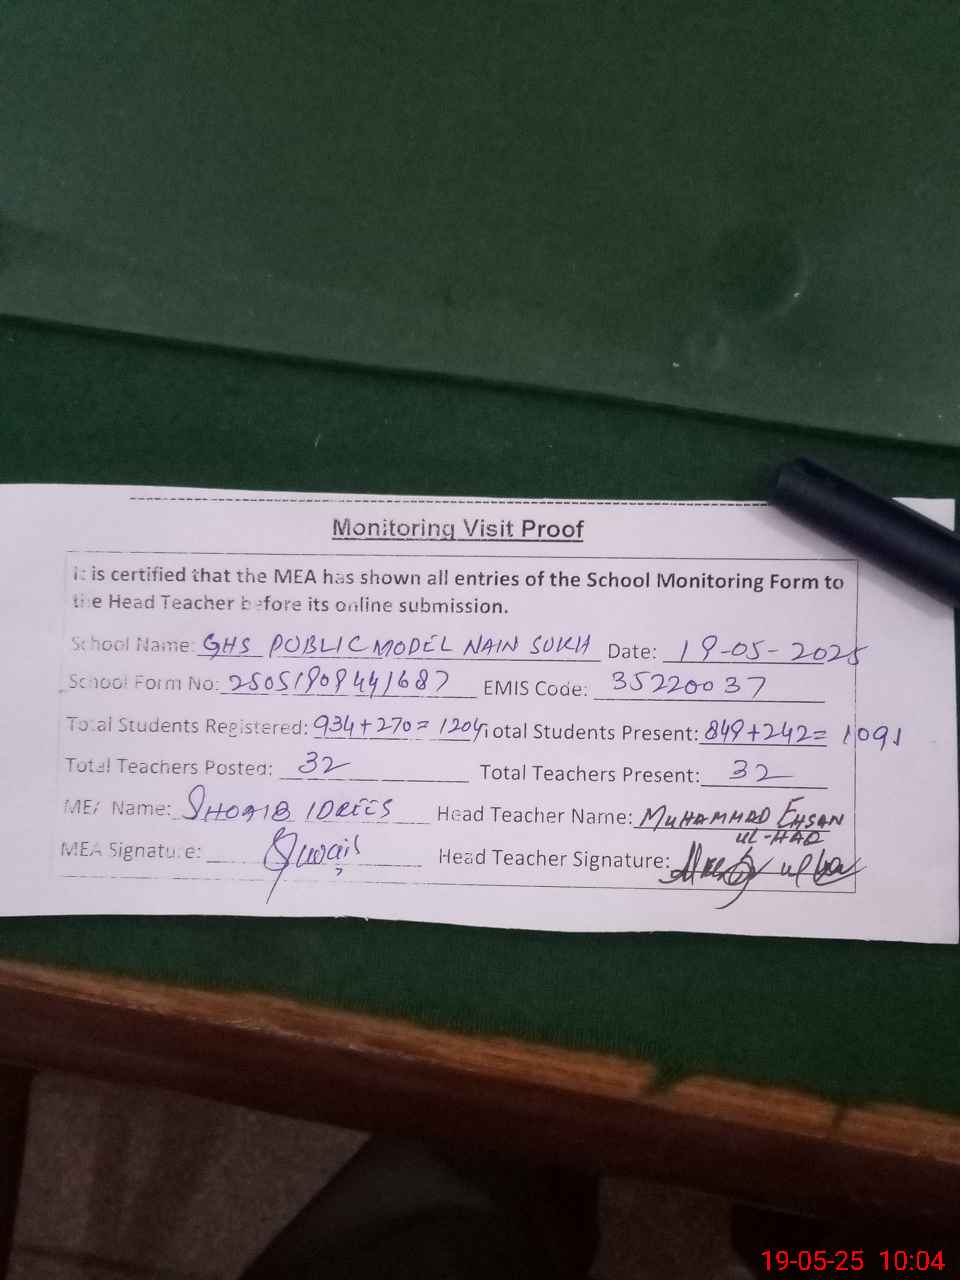 Monitoring Visit Proof
It is certified that the MEA has shown all entries of the School Monitoring Form to
the Head Teacher before its online submission.
School Name: GHS PUBLIC MODEL NAIN SUKH Date: 19-05-2025
School Form No: 25051909441687 EMIS Code: 35220037
Total Students Registered: 934+270=1204 Total Students Present: 849+242=1091
Total Teachers Posted: 32 Total Teachers Present: 32
MEA Name: SHOAIB IDREES Head Teacher Name: MUHAMMAD EHSAN
UL-HAQ
MEA Signature: Head Teacher Signature:
19-05-25 10:04